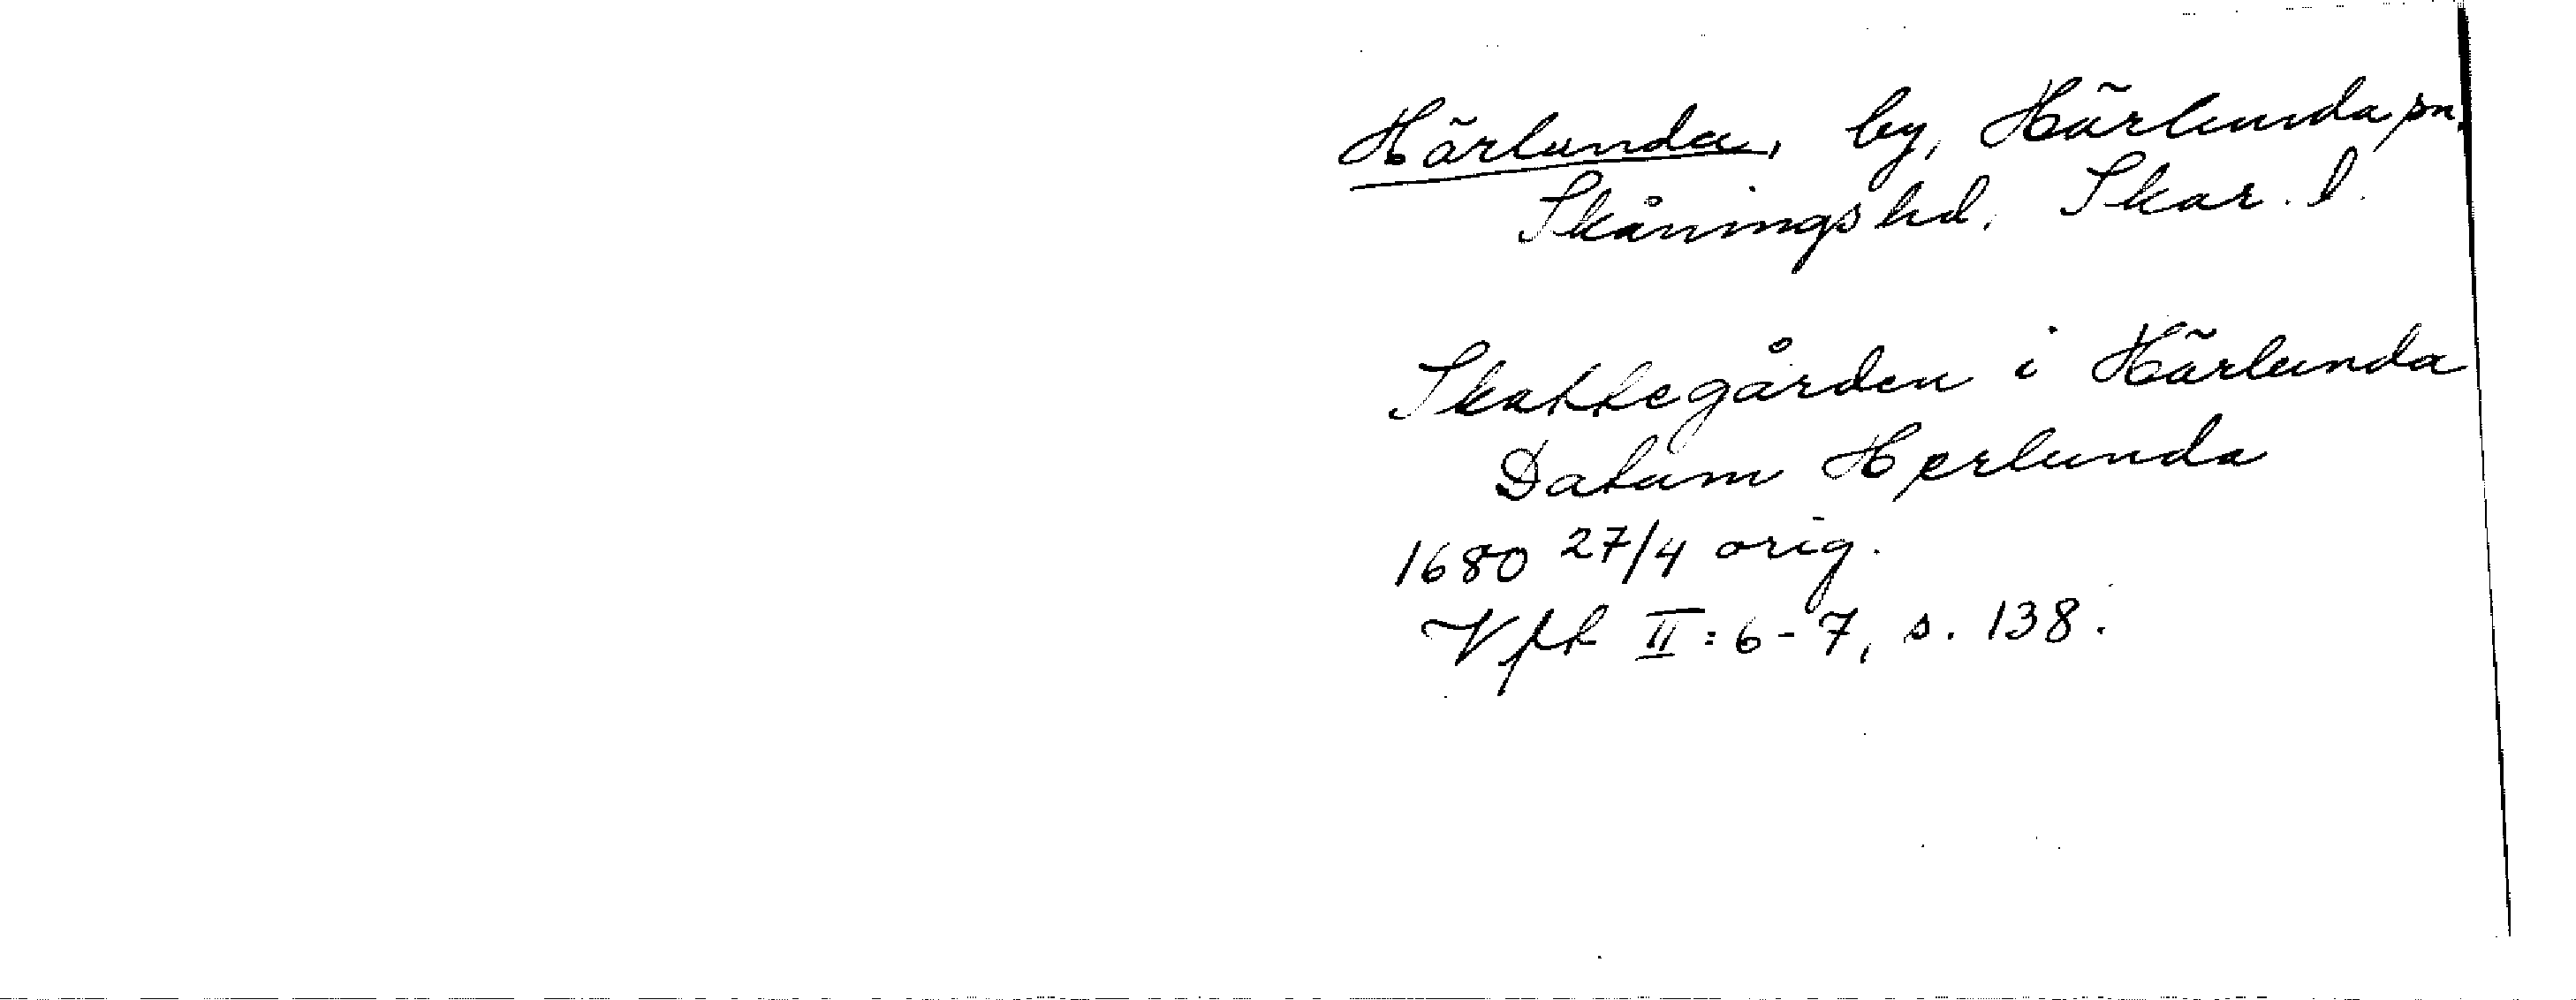 Härlunda, by, Härlunda sn.
Skånings hd. Skar. l.
Skattegården i Härlunda
Datum Herlunda
1680 27/4 orig.
Vft II: 6-7, s. 138.